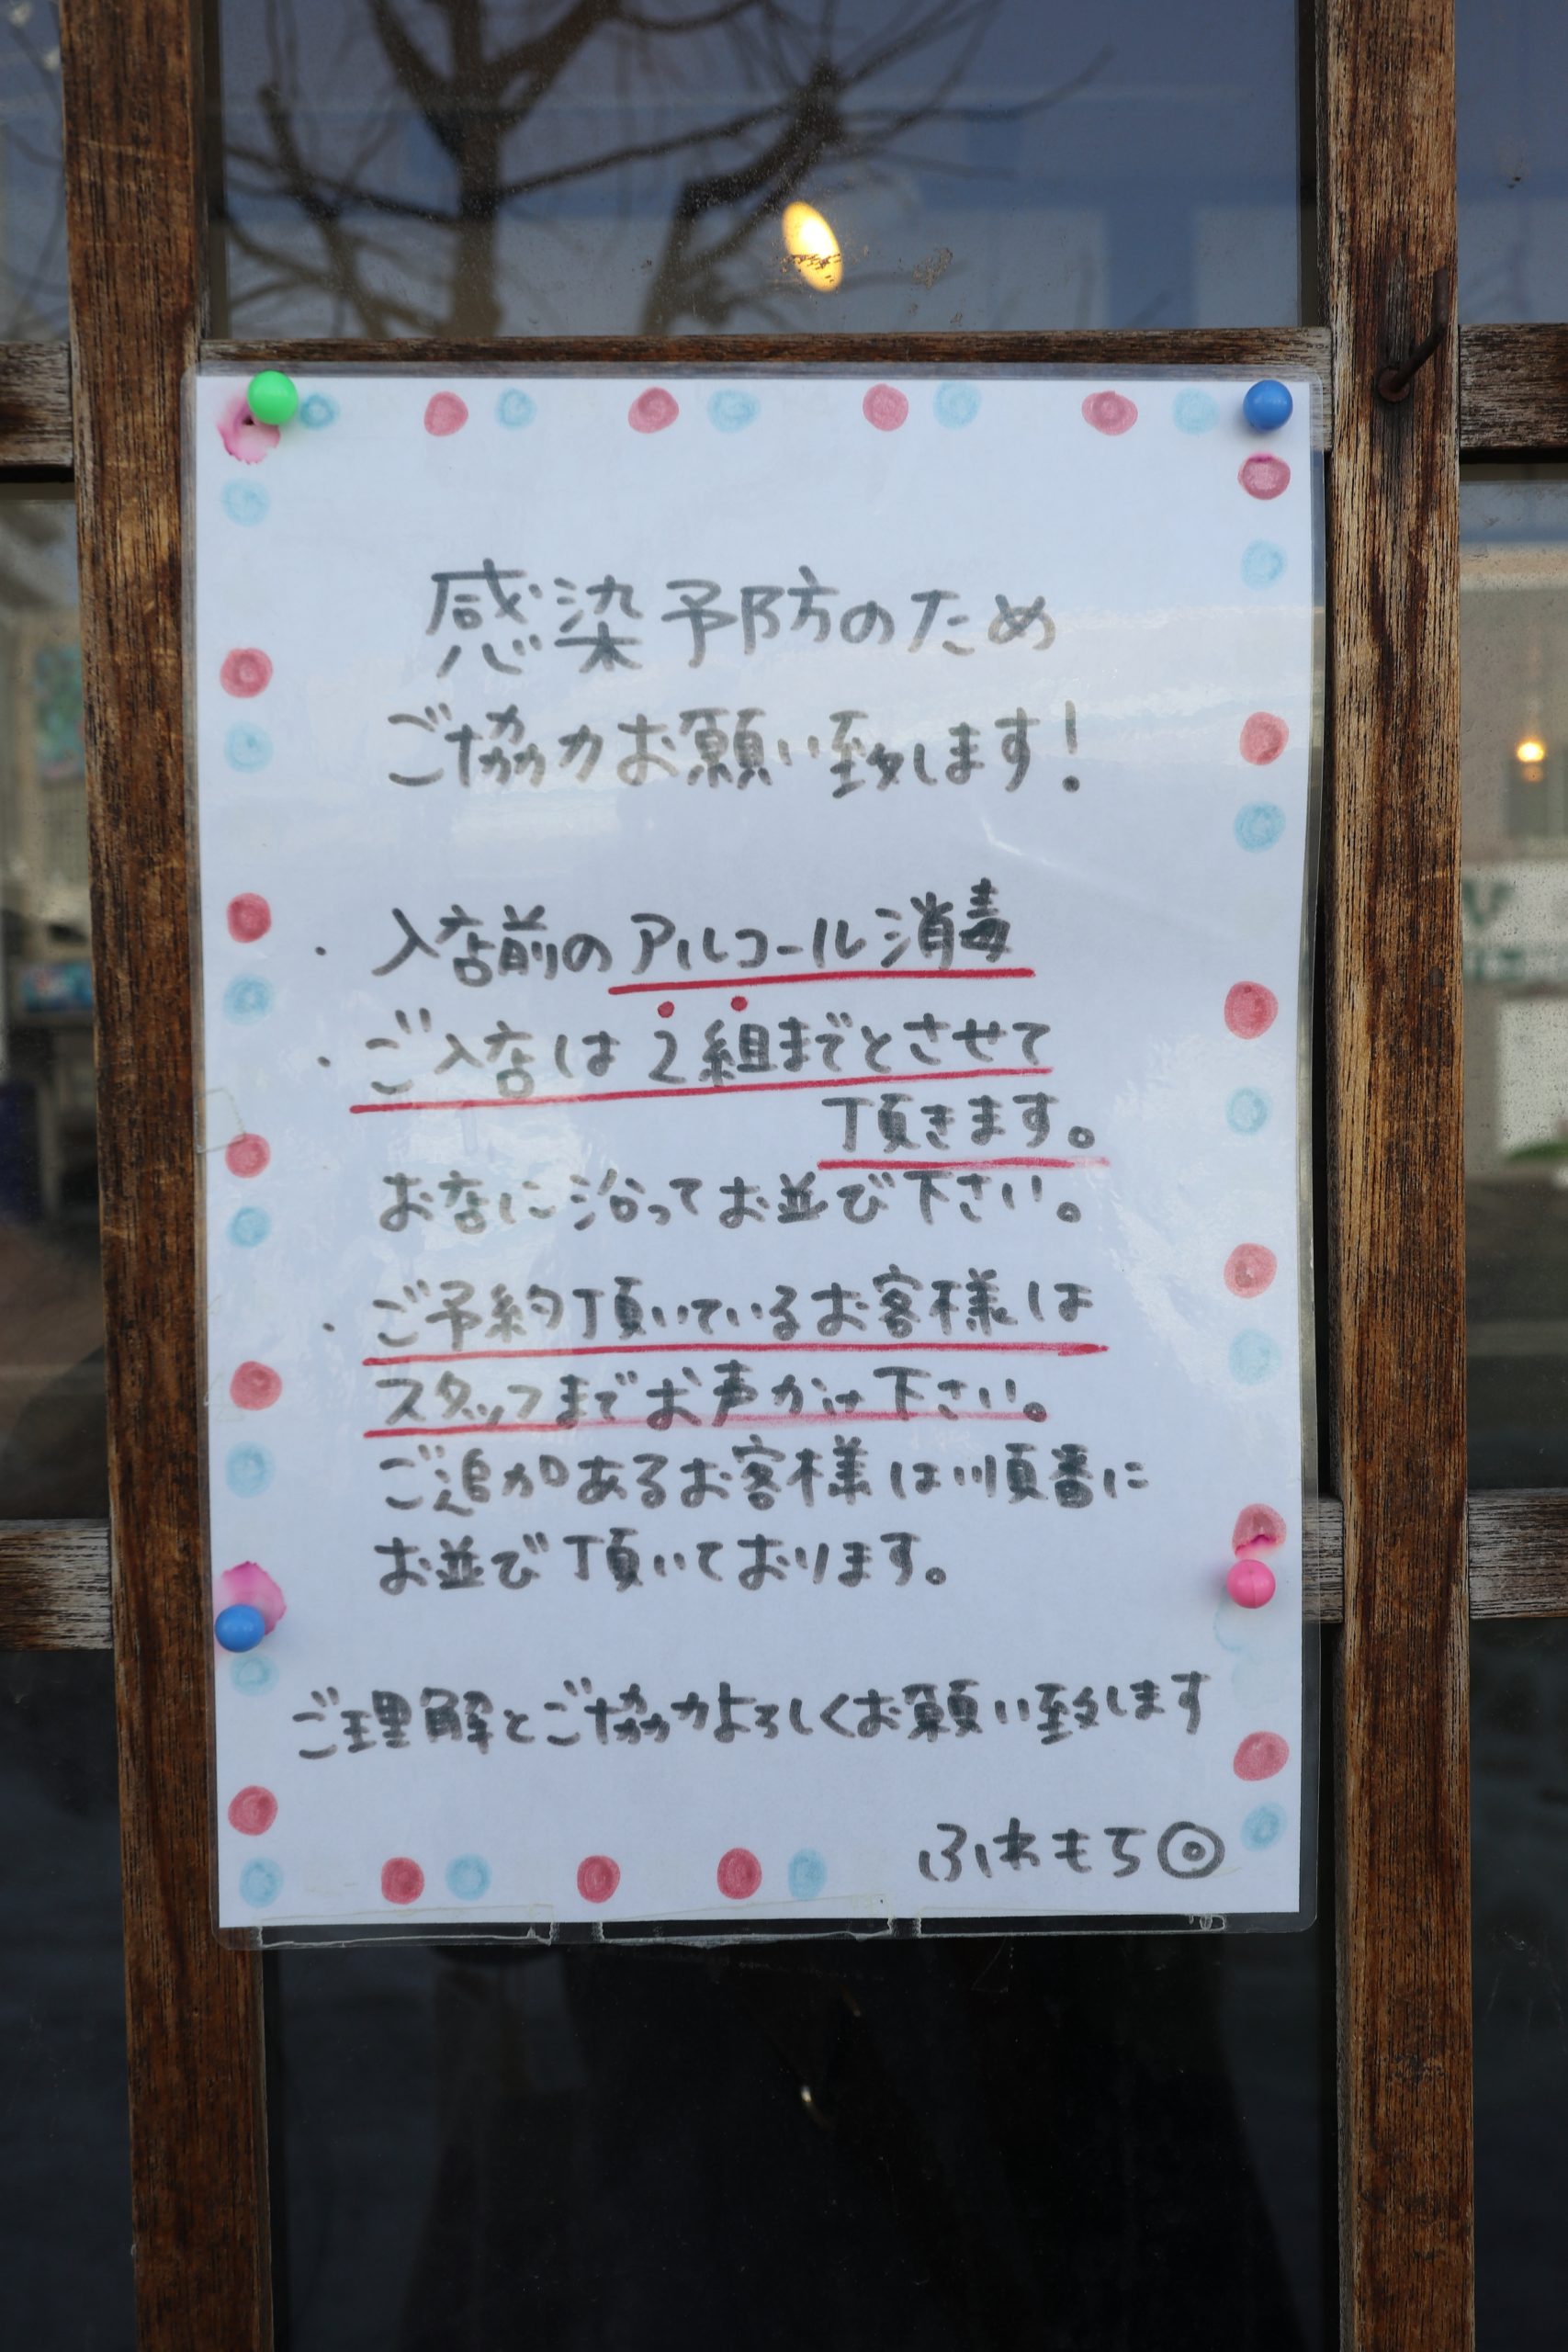 感染予防のため
ご協力お願い致します!
・入店前のアルコール消毒
・ご入店は2組までとさせて
頂きます。
お店に沿ってお並び下さい。
・ご予約頂いているお客様は
スタッフまでお声かけ下さい。
ご追加あるお客様は順番に
お並び頂いております。
ご理解とご協力よろしくお願い致します
ふわもち◎